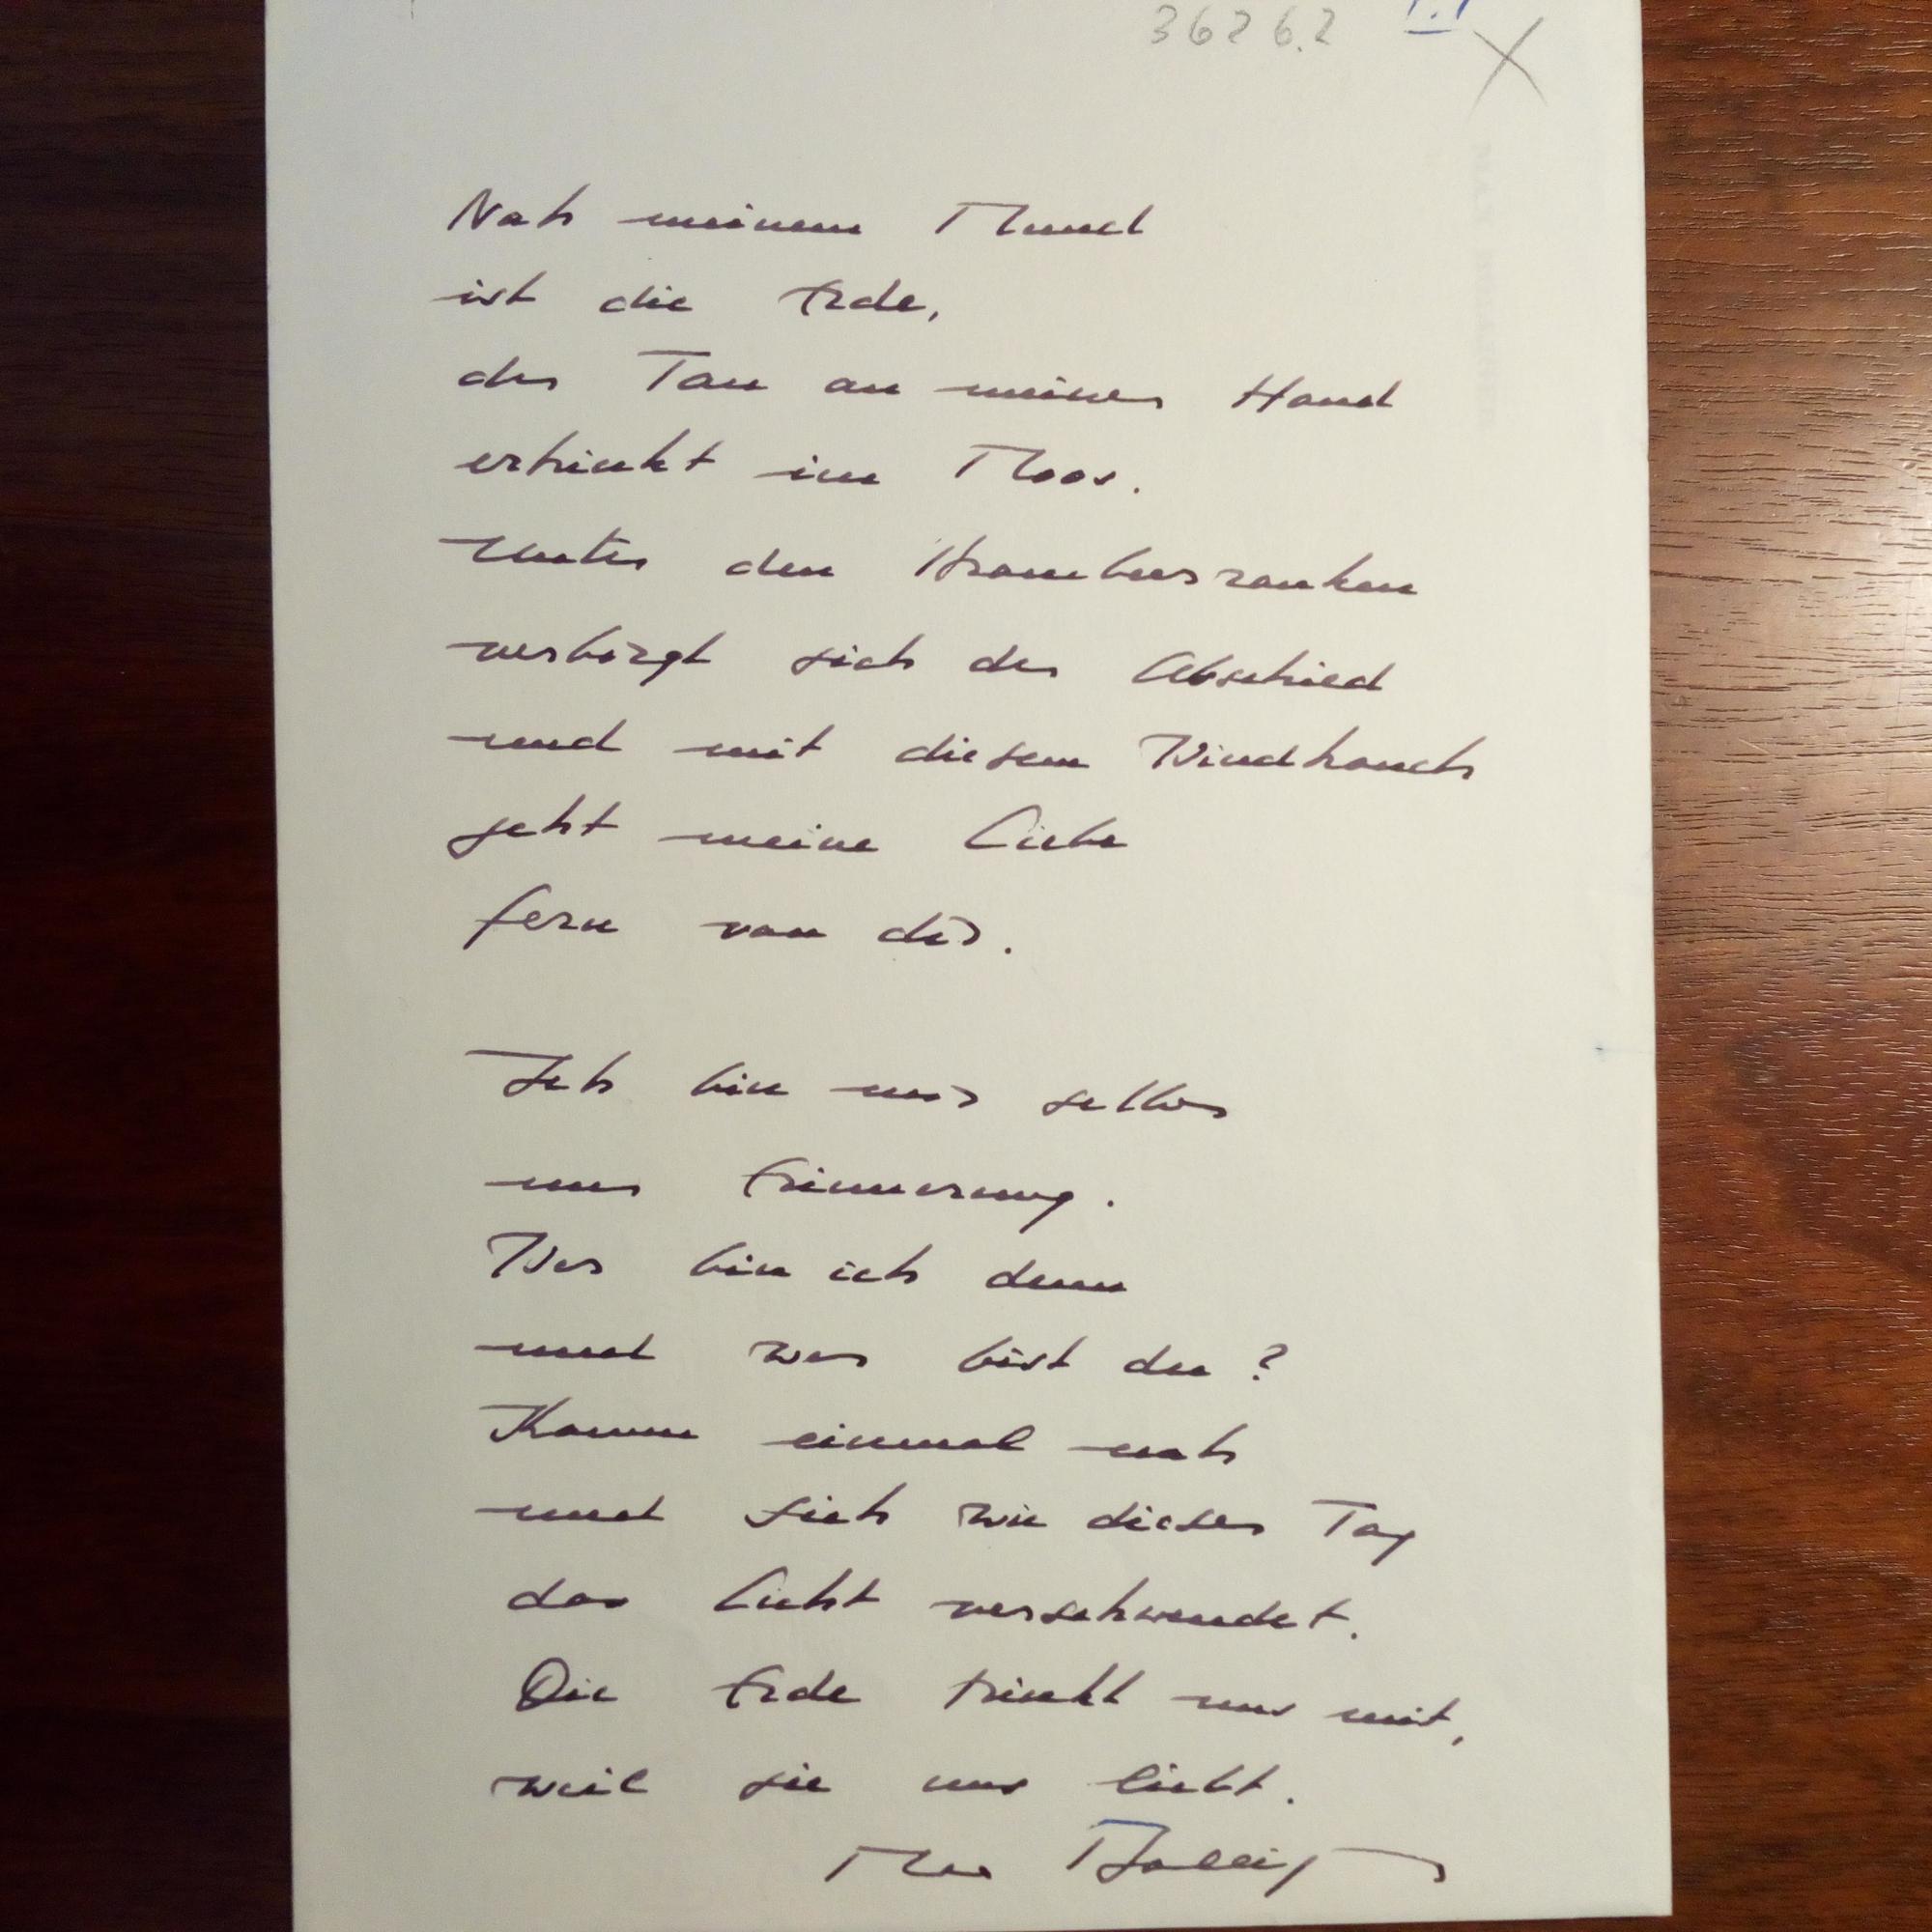 3626.2
Nah meinem Mund
ist die Erde,
der Tau an meiner Hand
ertrinkt im Moos.
Unter den Brombeerranken
verbirgt sich der Abschied
und mit diesem Windhauch
geht meine Liebe
fern von dir.
Ich bin mir selber
nur Erinnerung.
Wer bin ich denn
und wer bist du?
Komm einmal nah
und sieh wie dieser Tag
das Licht verschwendet.
Die Erde trinkt uns mit,
weil sie uns liebt.
Max Bolliger